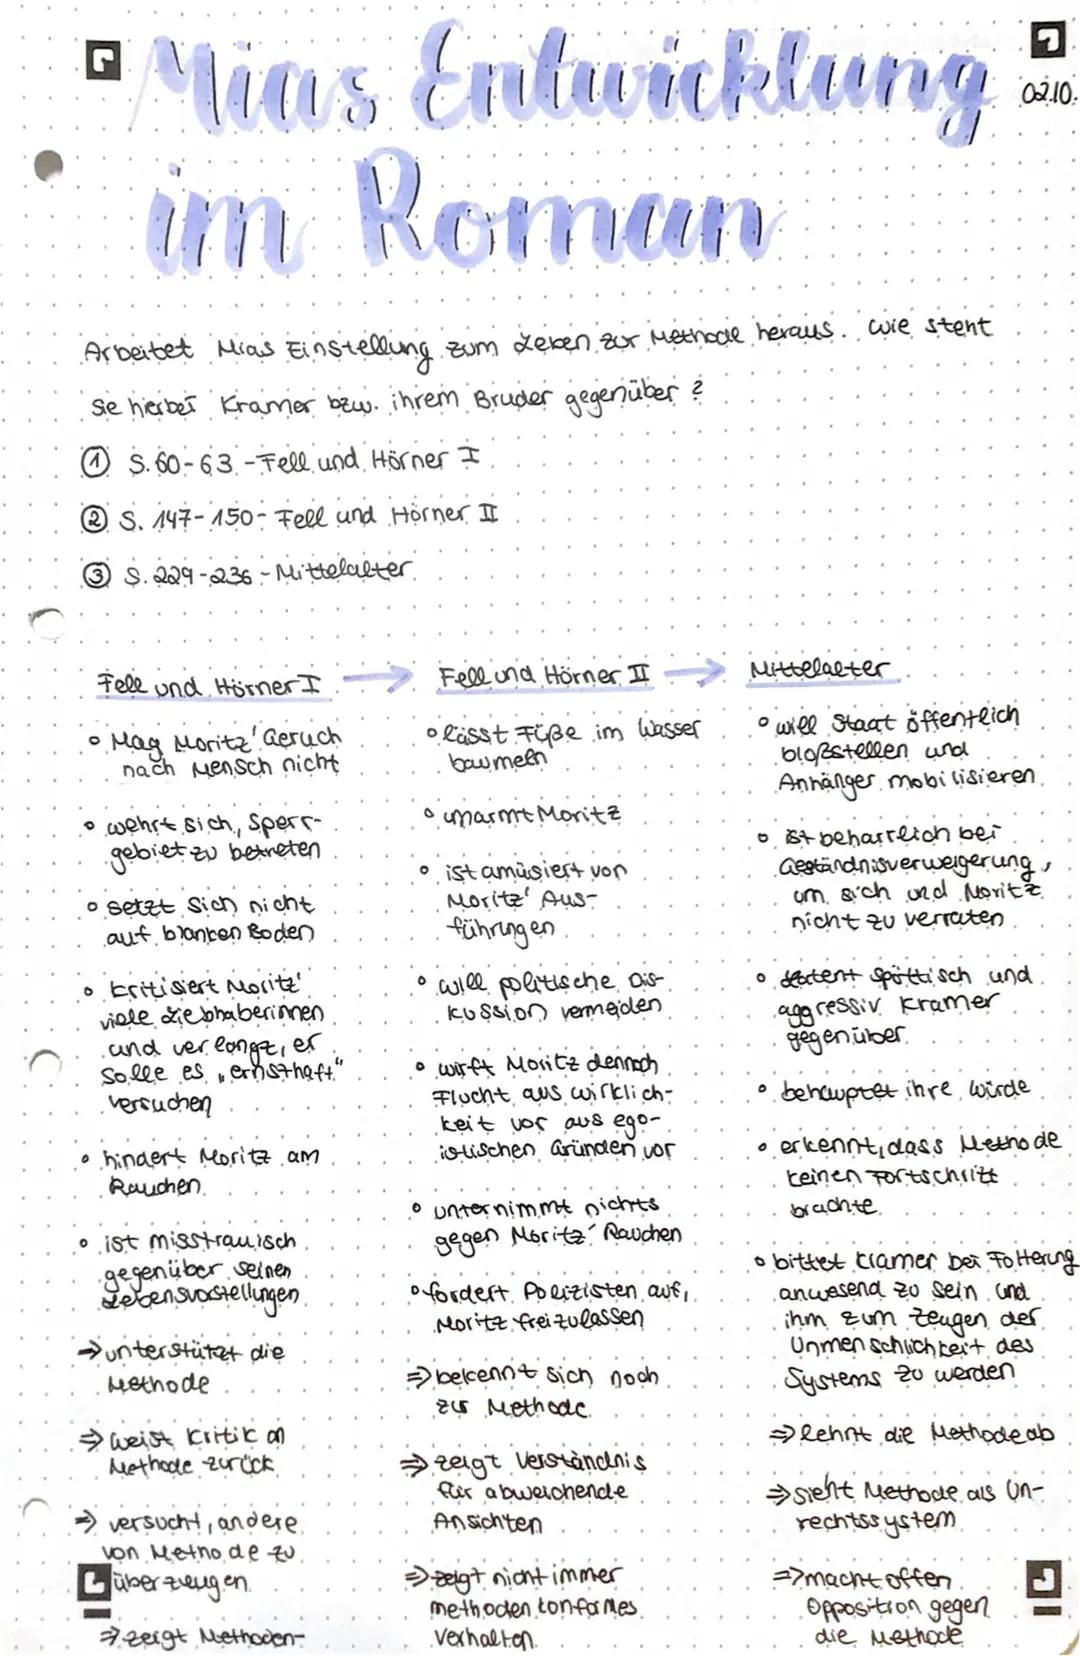 Mias Entwicklung
02.10.
im Roman
Arbeitet Mias Einstellung zum Leben zur Methode heraus. Wie steht
sie hierbei Kramer bzw. ihrem Bruder gegenüber?
① S. 60-63 - Fell und Hörner I
② S. 147-150 - Fell und Hörner II
③ S. 229-236 - Mittelalter
Fell und Hörner I → Fell und Hörner II → Mittelalter
◦ Mag Moritz' Geruch
nach Mensch nicht
◦ wehrt sich, Sperr-
gebiet zu betreten
◦ setzt sich nicht
auf blanken Boden
◦ kritisiert Moritz'
viele Liebhaberinnen
und verlangt, er
solle es „ernsthaft"
versuchen
◦ hindert Moritz am
Rauchen
◦ ist misstrauisch
gegenüber seinen
Lebensvorstellungen
→ unterstützt die
Methode
⇒ weist Kritik an
Methode zurück
⇒ versucht, andere
von Methode zu
überzeugen
⇒ zeigt Methoden-
◦ lässt Füße im Wasser
baumeln
◦ umarmt Moritz
◦ ist amüsiert von
Moritz' Aus-
führungen
◦ will politische Dis-
kussion vermeiden
◦ wirft Moritz dennoch
Flucht aus Wirklich-
keit vor aus ego-
istischen Gründen vor
◦ unternimmt nichts
gegen Moritz' Rauchen
◦ fordert Polizisten auf,
Moritz freizulassen
⇒ bekennt sich noch
zur Methode
⇒ zeigt Verständnis
für abweichende
Ansichten
⇒ zeigt nicht immer
methodenkonformes
Verhalten
◦ will Staat öffentlich
bloßstellen und
Anhänger mobilisieren
◦ ist beharrlich bei
Geständnisverweigerung,
um sich und Moritz
nicht zu verraten
◦ spöttisch und
aggressiv Kramer
gegenüber
◦ behauptet ihre Würde
◦ erkennt, dass Methode
keinen Fortschritt
brachte
◦ bittet Kramer bei Folterung
anwesend zu sein und
ihm zum Zeugen der
Unmenschlichkeit des
Systems zu werden
⇒ lehnt die Methode ab
⇒ sieht Methode als Un-
rechtssystem
⇒ macht offen
Opposition gegen
die Methode